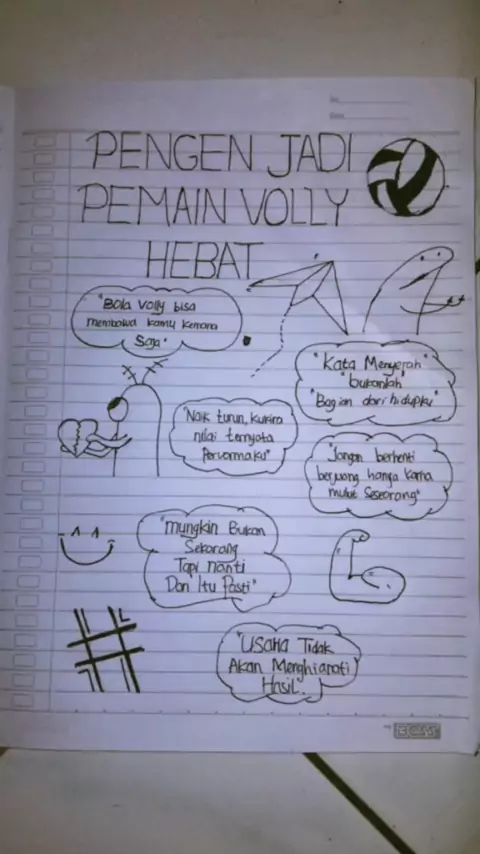 PENGEN JADI
PEMAIN VOLLY
HEBAT
"Bola Volly bisa
membawa kamu kemana
Saja"
"Kata Menyerah"
"bukanlah"
"Bagian dari hidupku"
"Naik turun, kukira
nilai ternyata
Pervormaku"
"Jangan berhenti
berjuang hanya karna
mulut Seseorang"
"mungkin Bukan
Sekarang
Tapi nanti
Dan Itu Pasti"
"USAHA TIDAK
AKAN Menghianati
HASIL.